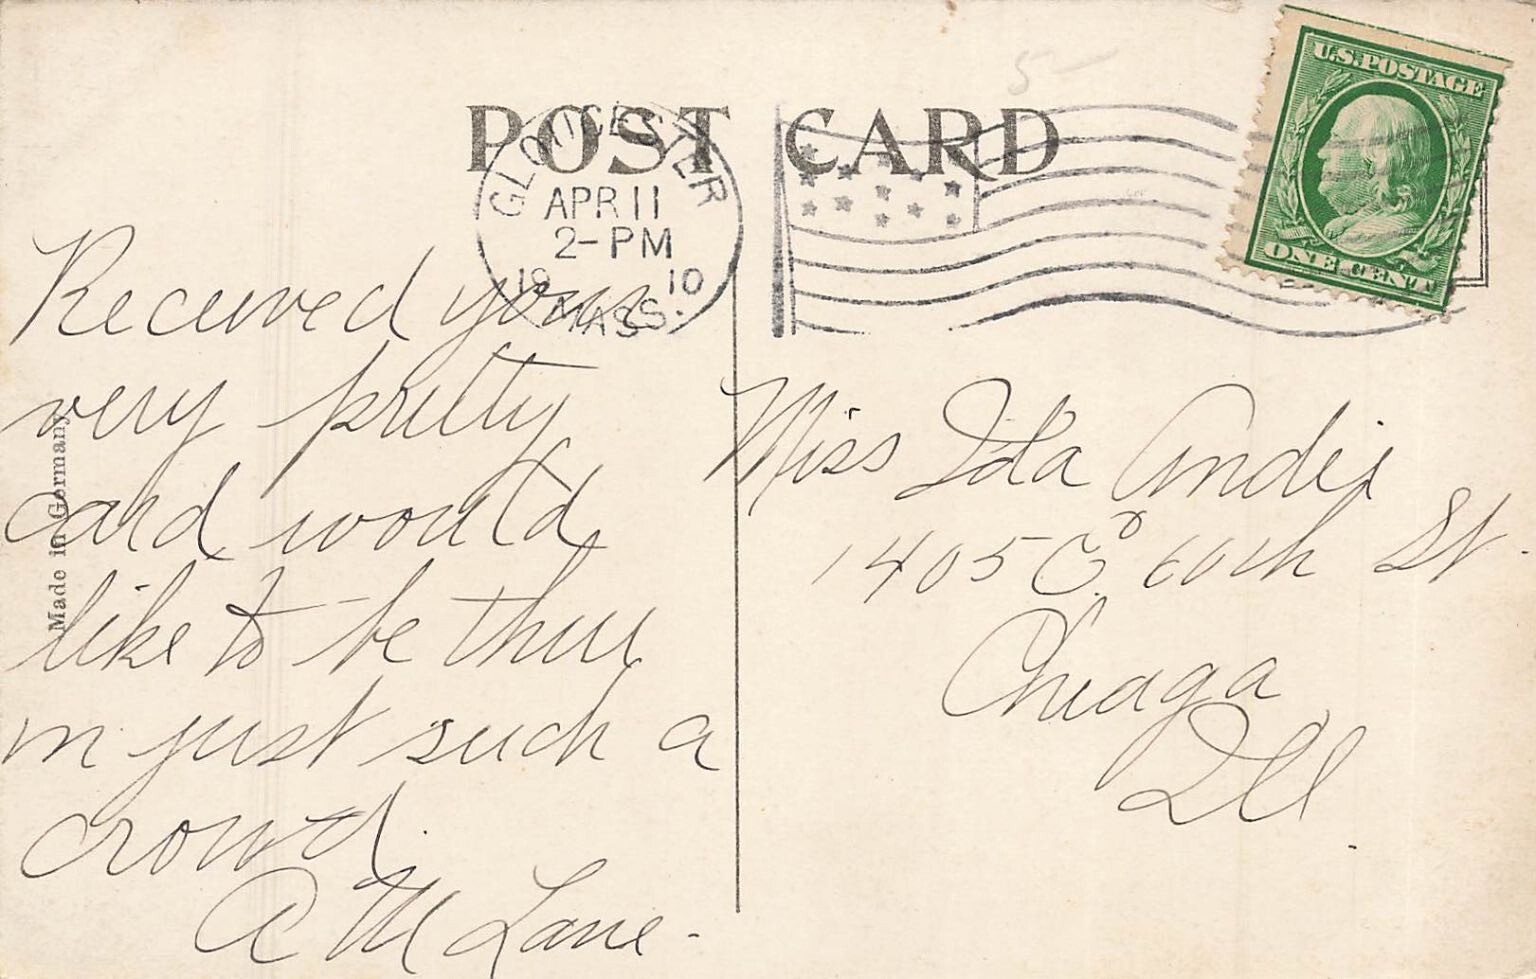 POST CARD
5-
GLOUCESTER
APR 11
2-PM
1910
MASS.
U.S. POSTAGE
ONE CENT
Made in Germany
Received your
very pretty
card would
like to be there
in just such a
crowd.
A M Lane.
Miss Ida
1405 60th St.
Chicago
Ill.